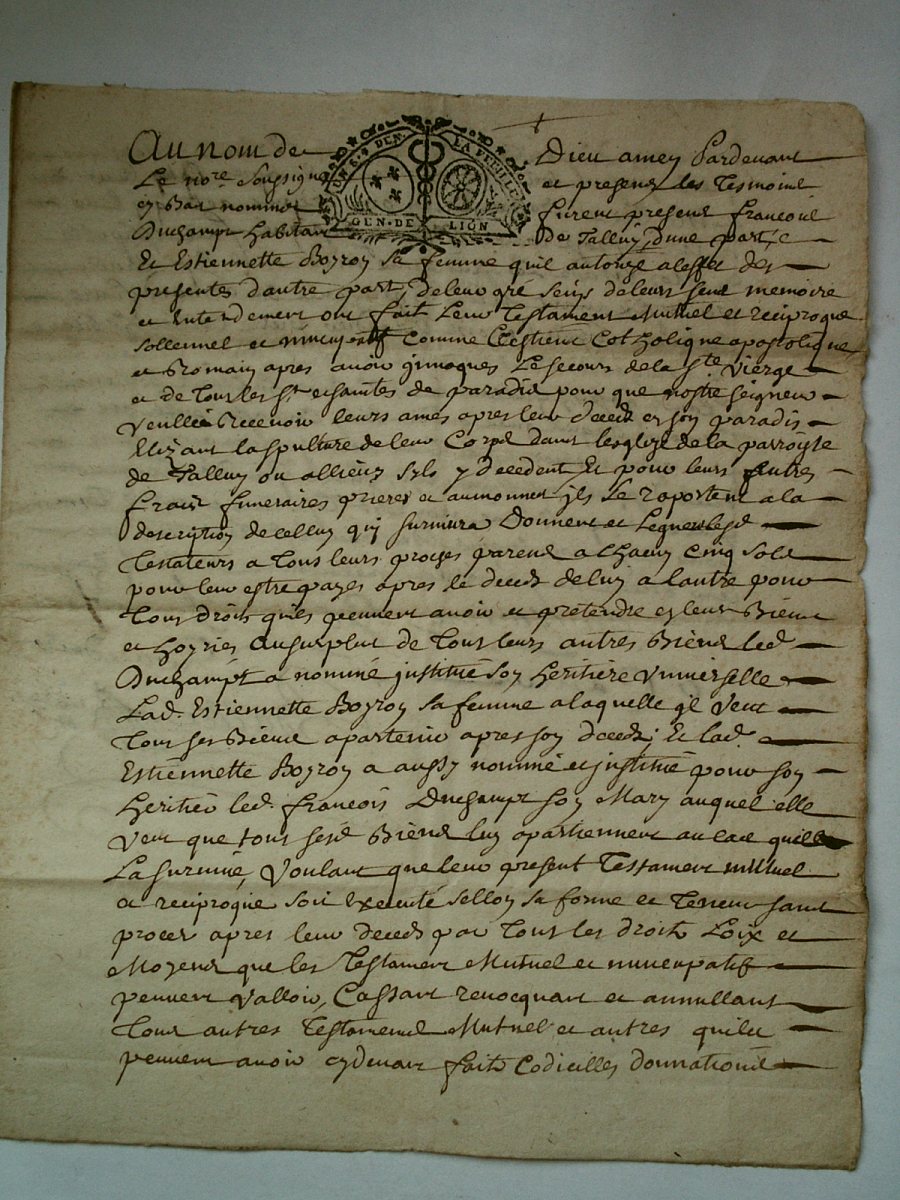 Au nom de Dieu amen Pardevant
DEN. LA FEUILLE
GEN. DE LION
Le no.re soussigné et presens les Tesmoins
cy bas nommes furent presens Francois
Duchampt habitant de Talluy d'une part, &
Et Estiennette Boyron sa femme quil autorize a leffet des
presentes d'autre part, de leur gre sains de leurs sens memoire
et entendement ont fait Leur Testament Mutuel et reciproque
sollennel et nuncupatif comme Crestiens Catholique apostolique
et Romain apres avoir jnvoqués Le secours de la Ste. Vierge
et de Tous les Sts. et saintes de paradis pour que nostre seigneur
veuille Recevoir leurs ames apres leur deceds en son paradis
Elizant la sepulture de leur Corps dans lesglize de la parroisse
de Talluy ou allieurs sils y decedent Et pour leurs autres
frais funeraires prieres et aumonnes jls se raportent a la
discreption de celluy qui survivra Donnent et Leguent lesd.
Testateurs a Tous leurs proches parens a chacun cinq sols
pour leur estre payes apres le deceds de luy a lautre pour
Tous droits quils peuvent avoir et pretendre en leurs Biens
et hoyries Au surplus de Tous leurs autres Biens led.
Duchampt a nommé jnstitué son heritiere Universelle
Lad. Estiennette Boyron sa femme a laquelle jl veut
Tous ses Biens apartenir apres son deceds; Et lad.
Estiennette Boyron a aussy nommé et jnstitué pour son
heritier led. François Duchampt son Mary auquel elle
veut que tous sesd. Biens luy apartiennent au cas quil
La survive, Voulant que leur present Testament mutuel
et reciproque soit Executé sellon sa forme et Teneur sans
proces apres leur deceds par Tous les droits Loix et
Moyens que les Testament Mutuel et nuncupatif
peuvent Valloir, Cassant revocquant et annullant
Tous autres Testamens Mutuel et autres quils
peuvent avoir cydevant faits Codicilles donnations